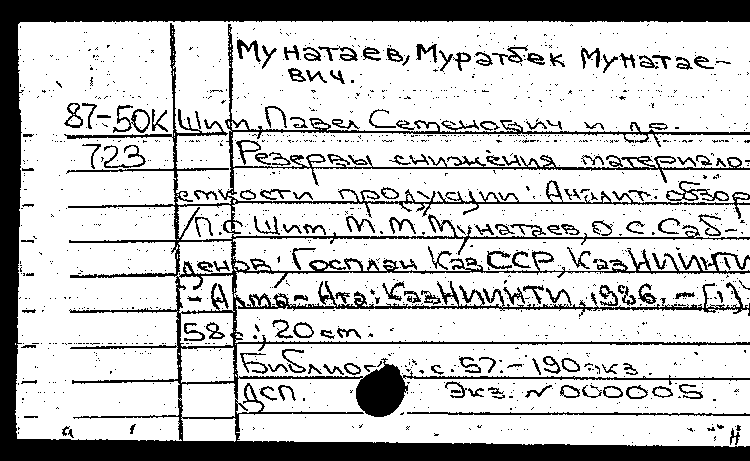 Мунатаев, Муратбек Мунатае-
вич.
87-50К Шим, Павел Семенович и др.
723 Резервы снижения материало-
емкости продукции: Аналит. обзор
/П.С. Шим, М.М. Мунатаев, О.С. Саб-
денов; Госплан КазССР, КазНИИНТИ
- Алма-Ата: КазНИИНТИ, 1986. - [1],
58с.; 20 cm.
Библиогр. с. 57. - 190 экз.
ДСП. Экз. N 000005.